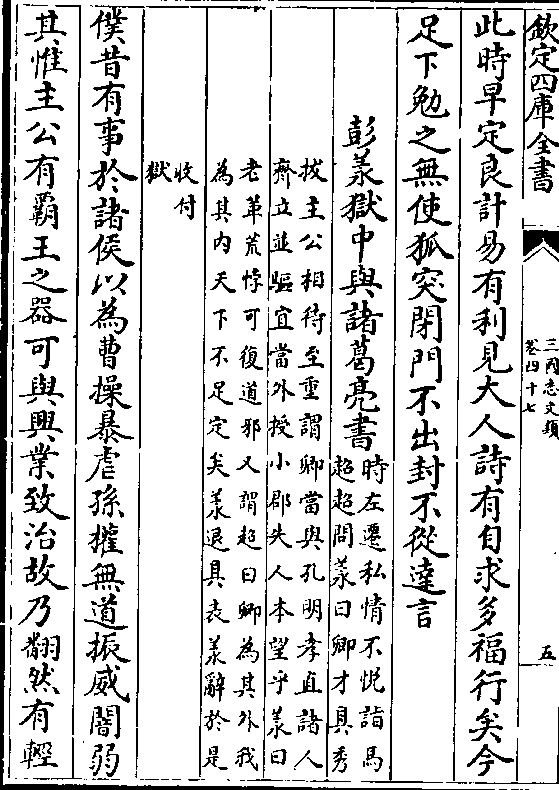 欽定四庫全書
三國志文類
卷四十七
五
此時早定良計易有利見大人詩有自求多福行矣今
足下勉之無使狐突閉門不出封不從達言
彭羕獄中與諸葛亮書
時左遷私情不悦詣馬
超超問羕曰卿才具秀
拔主公相待至重謂卿當與孔明孝直諸人
齊立並驅寜當外授小郡失人本望乎羕曰
老革荒悖可復道邪又謂超曰卿為其外我
為其内天下不足定矣羕退具表羕辭於是
收付
獄
僕昔有事於諸侯以為曹操暴虐孫權無道振威闇弱
其惟主公有霸王之器可與興業致治故乃翻然有輕